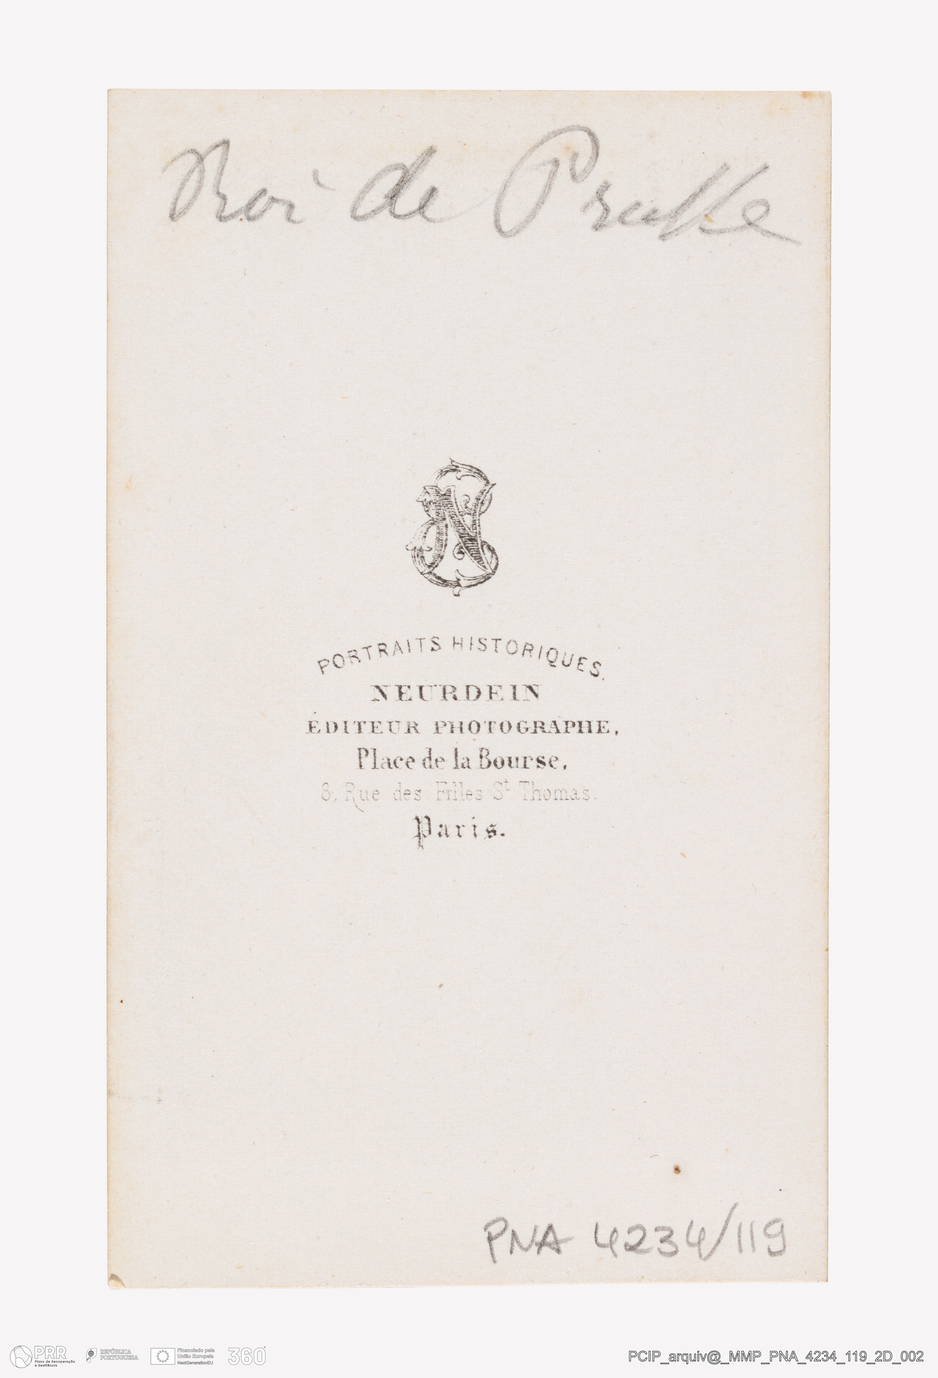 Roi de Prusse
PORTRAITS HISTORIQUES.
NEURDEIN
ÉDITEUR PHOTOGRAPHE,
Place de la Bourse,
8, Rue des Filles St Thomas.
Paris.
PNA 4234/119
PRR
Plano de Recuperação
e Resiliência
REPÚBLICA
PORTUGUESA
Financiado pela
União Europeia
NextGenerationEU
360
PCIP_arquiv@_MMP_PNA_4234_119_2D_002